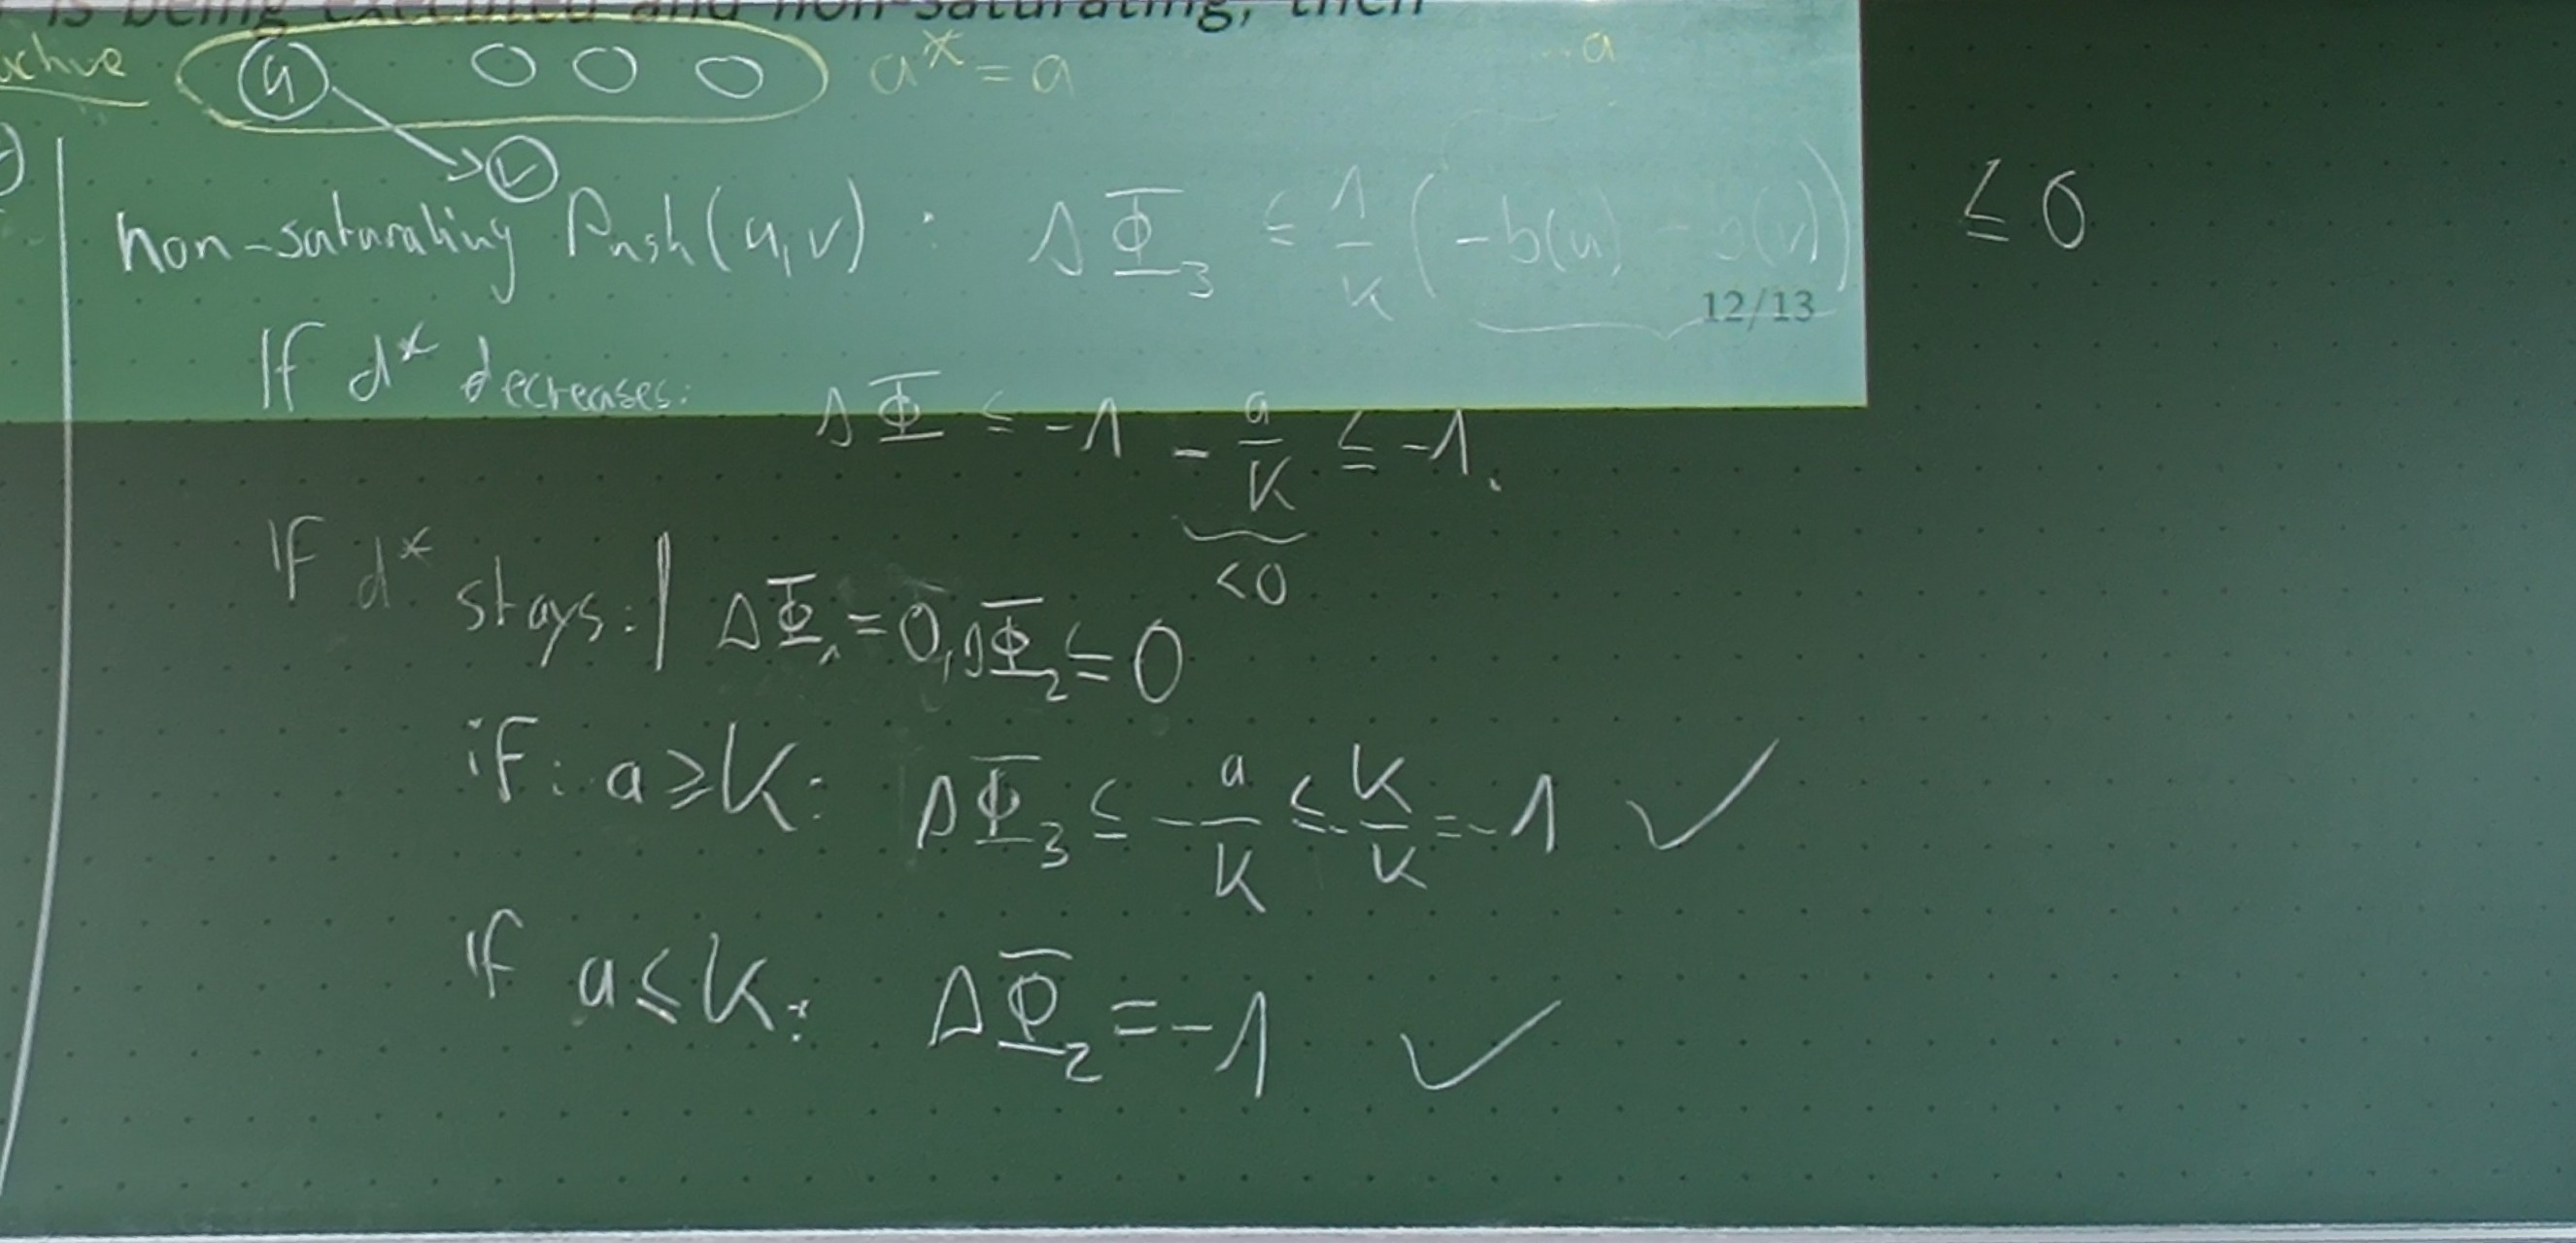 is being executed and non-saturating, then
active u a* = a a
v
non-saturating Push(u,v) : ΔΦ₃ ≤ 1/K (-b(u) - b(v)) ≤ 0
12/13
If d* decreases: ΔΦ ≤ -1 - a/K ≤ -1.
<0
If d* stays: | ΔΦ₁ = 0, ΔΦ₂ ≤ 0
if: a ≥ K: ΔΦ₃ ≤ - a/K ≤ - K/K = -1 ✓
If a ≤ K: ΔΦ₂ = -1 ✓